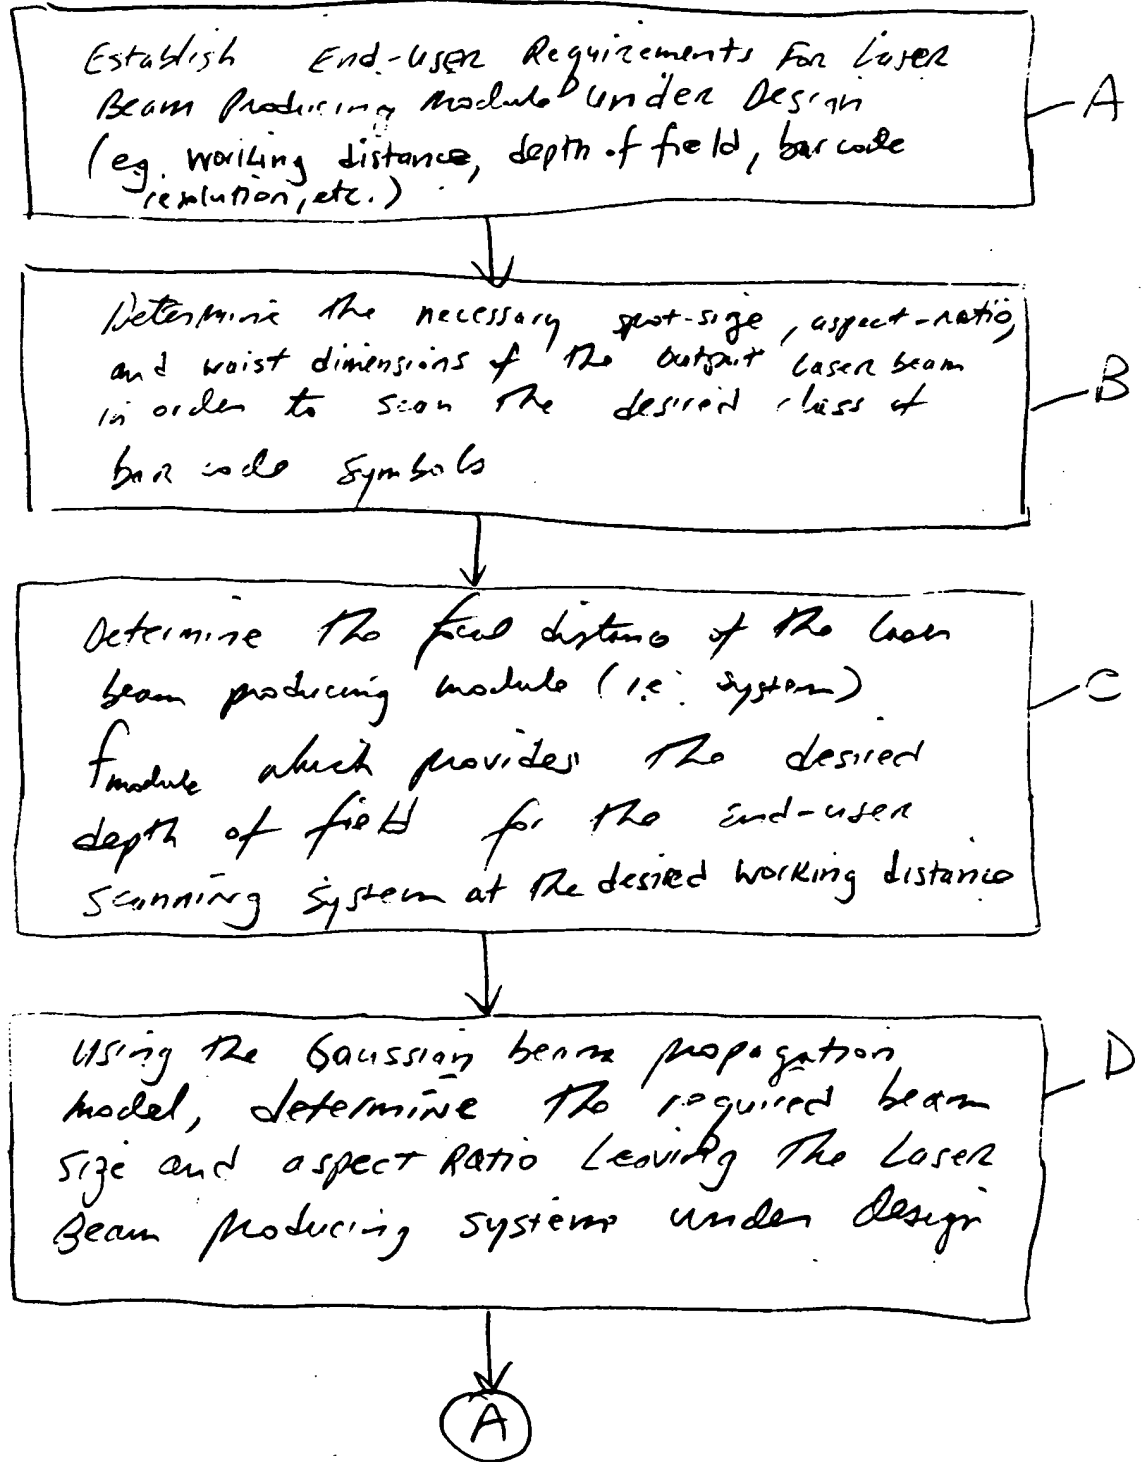 Establish End-user Requirements For Laser
Beam Producing Module Under Design
(eg. working distance, depth of field, bar code
resolution, etc.)
A
Determine the necessary spot-size, aspect-ratio,
and waist dimensions of the output laser beam
in order to scan the desired class of
bar code symbols
B
Determine the focal distance of the laser
beam producing module (i.e. system)
fmodule which provides the desired
depth of field for the end-user
scanning system at the desired working distance
C
Using the Gaussian beam propagation
model, determine the required beam
size and aspect Ratio Leaving The Laser
Beam producing systems under design
D
A